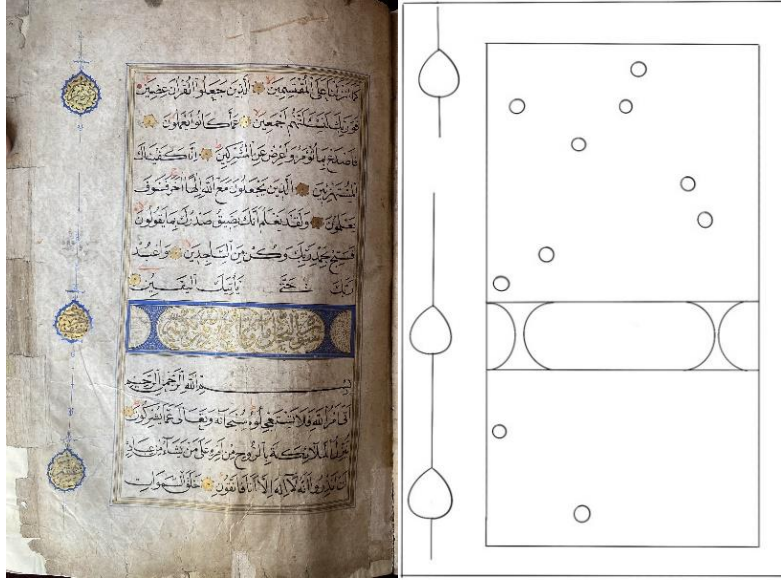 كَمَا أَنْزَلْنَا عَلَى الْمُقْتَسِمِينَ الَّذِينَ جَعَلُوا الْقُرْآنَ عِضِينَ
فَوَرَبِّكَ لَنَسْئَلَنَّهُمْ أَجْمَعِينَ عَمَّا كَانُوا يَعْمَلُونَ
فَاصْدَعْ بِمَا تُؤْمَرُ وَأَعْرِضْ عَنِ الْمُشْرِكِينَ إِنَّا كَفَيْنَاكَ
الْمُسْتَهْزِئِينَ الَّذِينَ يَجْعَلُونَ مَعَ اللَّهِ إِلَهًا آخَرَ فَسَوْفَ
يَعْلَمُونَ وَلَقَدْ نَعْلَمُ أَنَّكَ يَضِيقُ صَدْرُكَ بِمَا يَقُولُونَ
فَسَبِّحْ بِحَمْدِ رَبِّكَ وَكُنْ مِنَ السَّاجِدِينَ وَاعْبُدْ
رَبَّكَ حَتَّى يَأْتِيَكَ الْيَقِينُ
سورة النحل
بِسْمِ اللَّهِ الرَّحْمَنِ الرَّحِيمِ
أَتَى أَمْرُ اللَّهِ فَلَا تَسْتَعْجِلُوهُ سُبْحَانَهُ وَتَعَالَى عَمَّا يُشْرِكُونَ
يُنَزِّلُ الْمَلَائِكَةَ بِالرُّوحِ مِنْ أَمْرِهِ عَلَى مَنْ يَشَاءُ مِنْ عِبَادِهِ
أَنْ أَنْذِرُوا أَنَّهُ لَا إِلَهَ إِلَّا أَنَا فَاتَّقُونِ خَلَقَ السَّمَوَاتِ